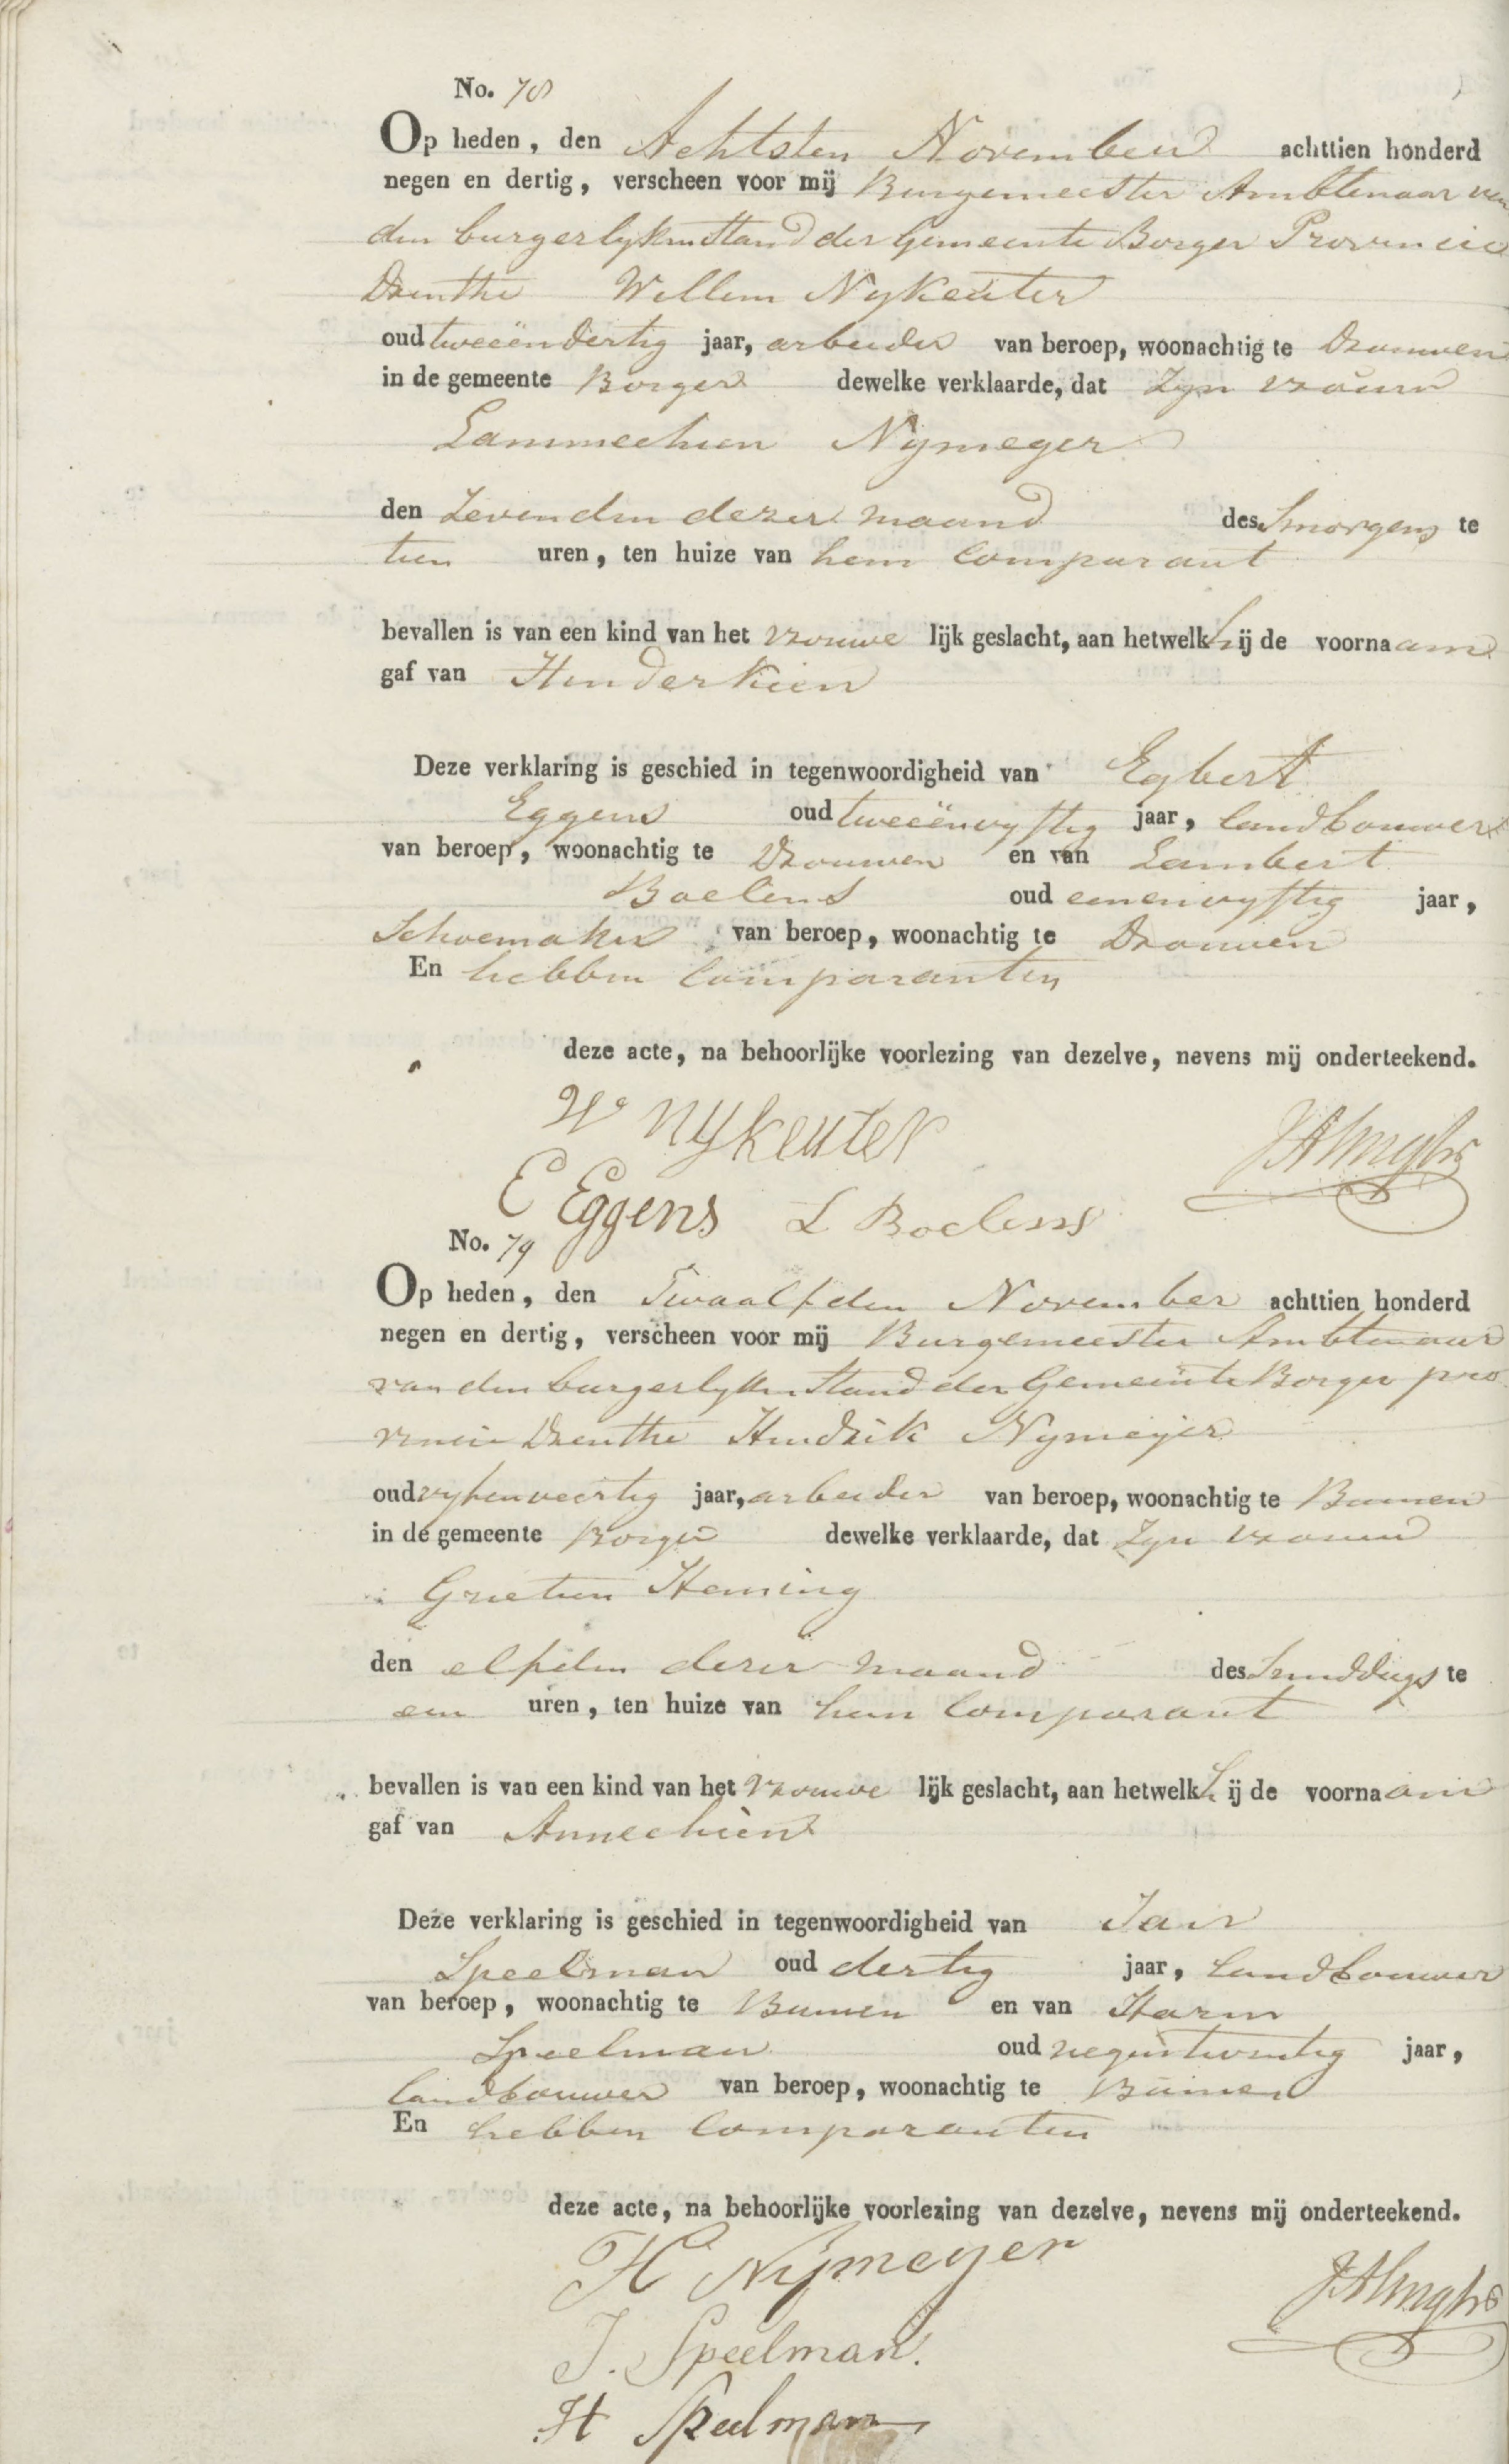 No. 78
Op heden, den Achtsten November achttien honderd
negen en dertig, verscheen voor mij Burgemeester Ambtenaar van
den burgerlyken Stand der Gemeente Borger Provincie
Drenthe Willem Nykeuter
oud tweeëndertig jaar, arbeider van beroep, woonachtig te Drouwen
in de gemeente Borger dewelke verklaarde, dat Zyn vrouw
Lammechien Nymeger
den Zevenden dezer maand des Smorgens te
tien uren, ten huize van hem Comparant
bevallen is van een kind van het vrouwe lijk geslacht, aan hetwelk hij de voornaam
gaf van Hinderkien
Deze verklaring is geschied in tegenwoordigheid van Egbert
Eggens oud tweeënvyftig jaar, landbouwer
van beroep, woonachtig te Drouwen en van Lambert
Boelens oud eenenvyftig jaar,
Schoemaker van beroep, woonachtig te Drouwen
En hebben Comparanten
deze acte, na behoorlijke voorlezing van dezelve, nevens mij onderteekend.
W Nykeuter
E Eggens L Boelens
No. 79
Op heden, den Twaalfden November achttien honderd
negen en dertig, verscheen voor mij Burgemeester Ambtenaar
van den burgerlyken Stand der Gemeente Borger pro
vincie Drenthe Hendrik Nymeijer
oud vyfenveertig jaar, arbeider van beroep, woonachtig te Buinen
in de gemeente Borger dewelke verklaarde, dat Zyn vrouw
Grietien Haming
den elfden dezer maand des Smiddags te
een uren, ten huize van hem Comparant
bevallen is van een kind van het vrouwe lijk geslacht, aan hetwelk hij de voornaam
gaf van Annechien
Deze verklaring is geschied in tegenwoordigheid van Jan
Speelman oud dertig jaar, landbouwer
van beroep, woonachtig te Buinen en van Harm
Speelman oud negentwintig jaar,
landbouwer van beroep, woonachtig te Buinen
En hebben Comparanten
deze acte, na behoorlijke voorlezing van dezelve, nevens mij onderteekend.
H Nijmeijer
J. Speelman.
H Speelman